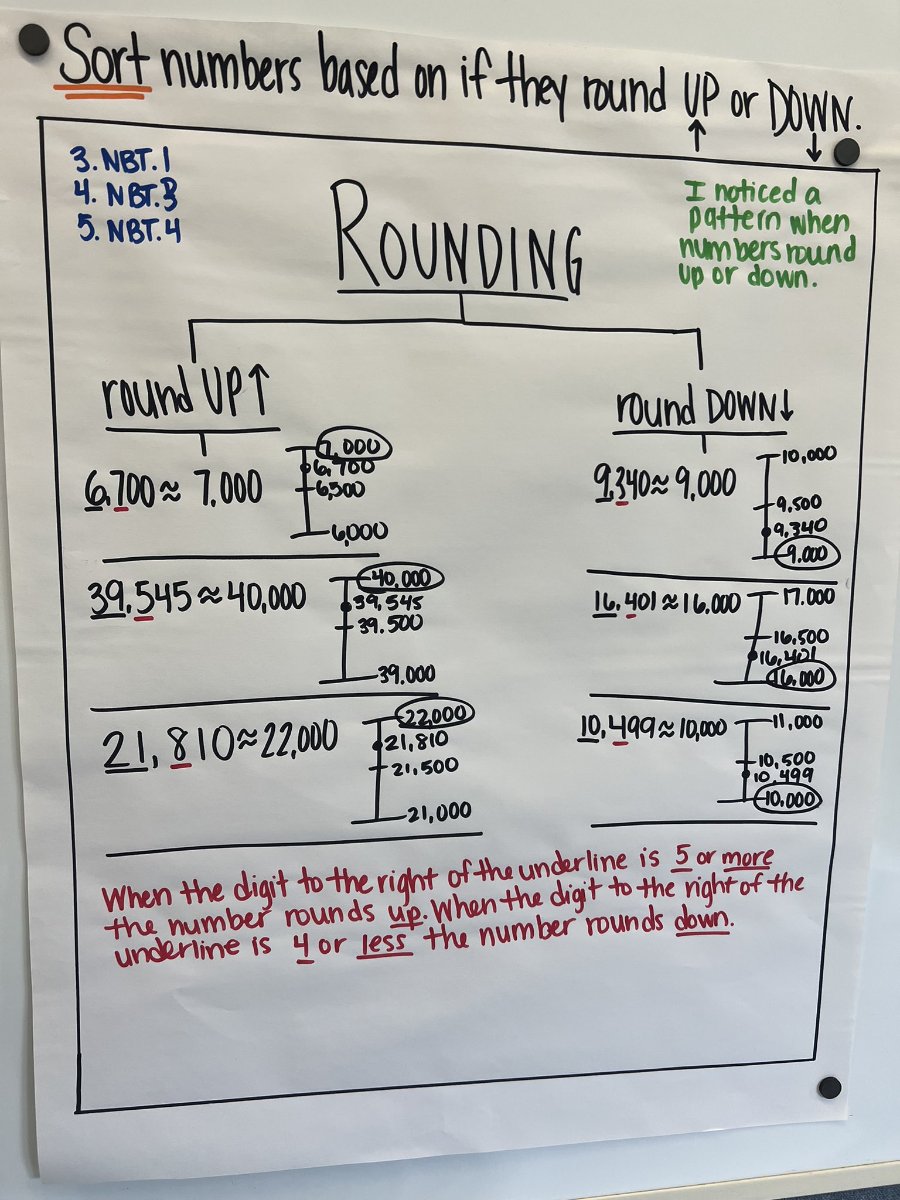 Sort numbers based on if they round UP or DOWN.
↑ ↓
3. NBT.1
4. NBT.3
5. NBT.4
I noticed a
pattern when
numbers round
up or down.
ROUNDING
round UP↑
6,700 ≈ 7,000
7,000
6,700
6,500
6,000
39,545 ≈ 40,000
40,000
39,545
39,500
39,000
21,810 ≈ 22,000
22,000
21,810
21,500
21,000
round DOWN↓
9,340 ≈ 9,000
10,000
9,500
9,340
9,000
16,401 ≈ 16,000
17,000
16,500
16,401
16,000
10,499 ≈ 10,000
11,000
10,500
10,499
10,000
When the digit to the right of the underline is 5 or more
the number rounds up. When the digit to the right of the
underline is 4 or less the number rounds down.